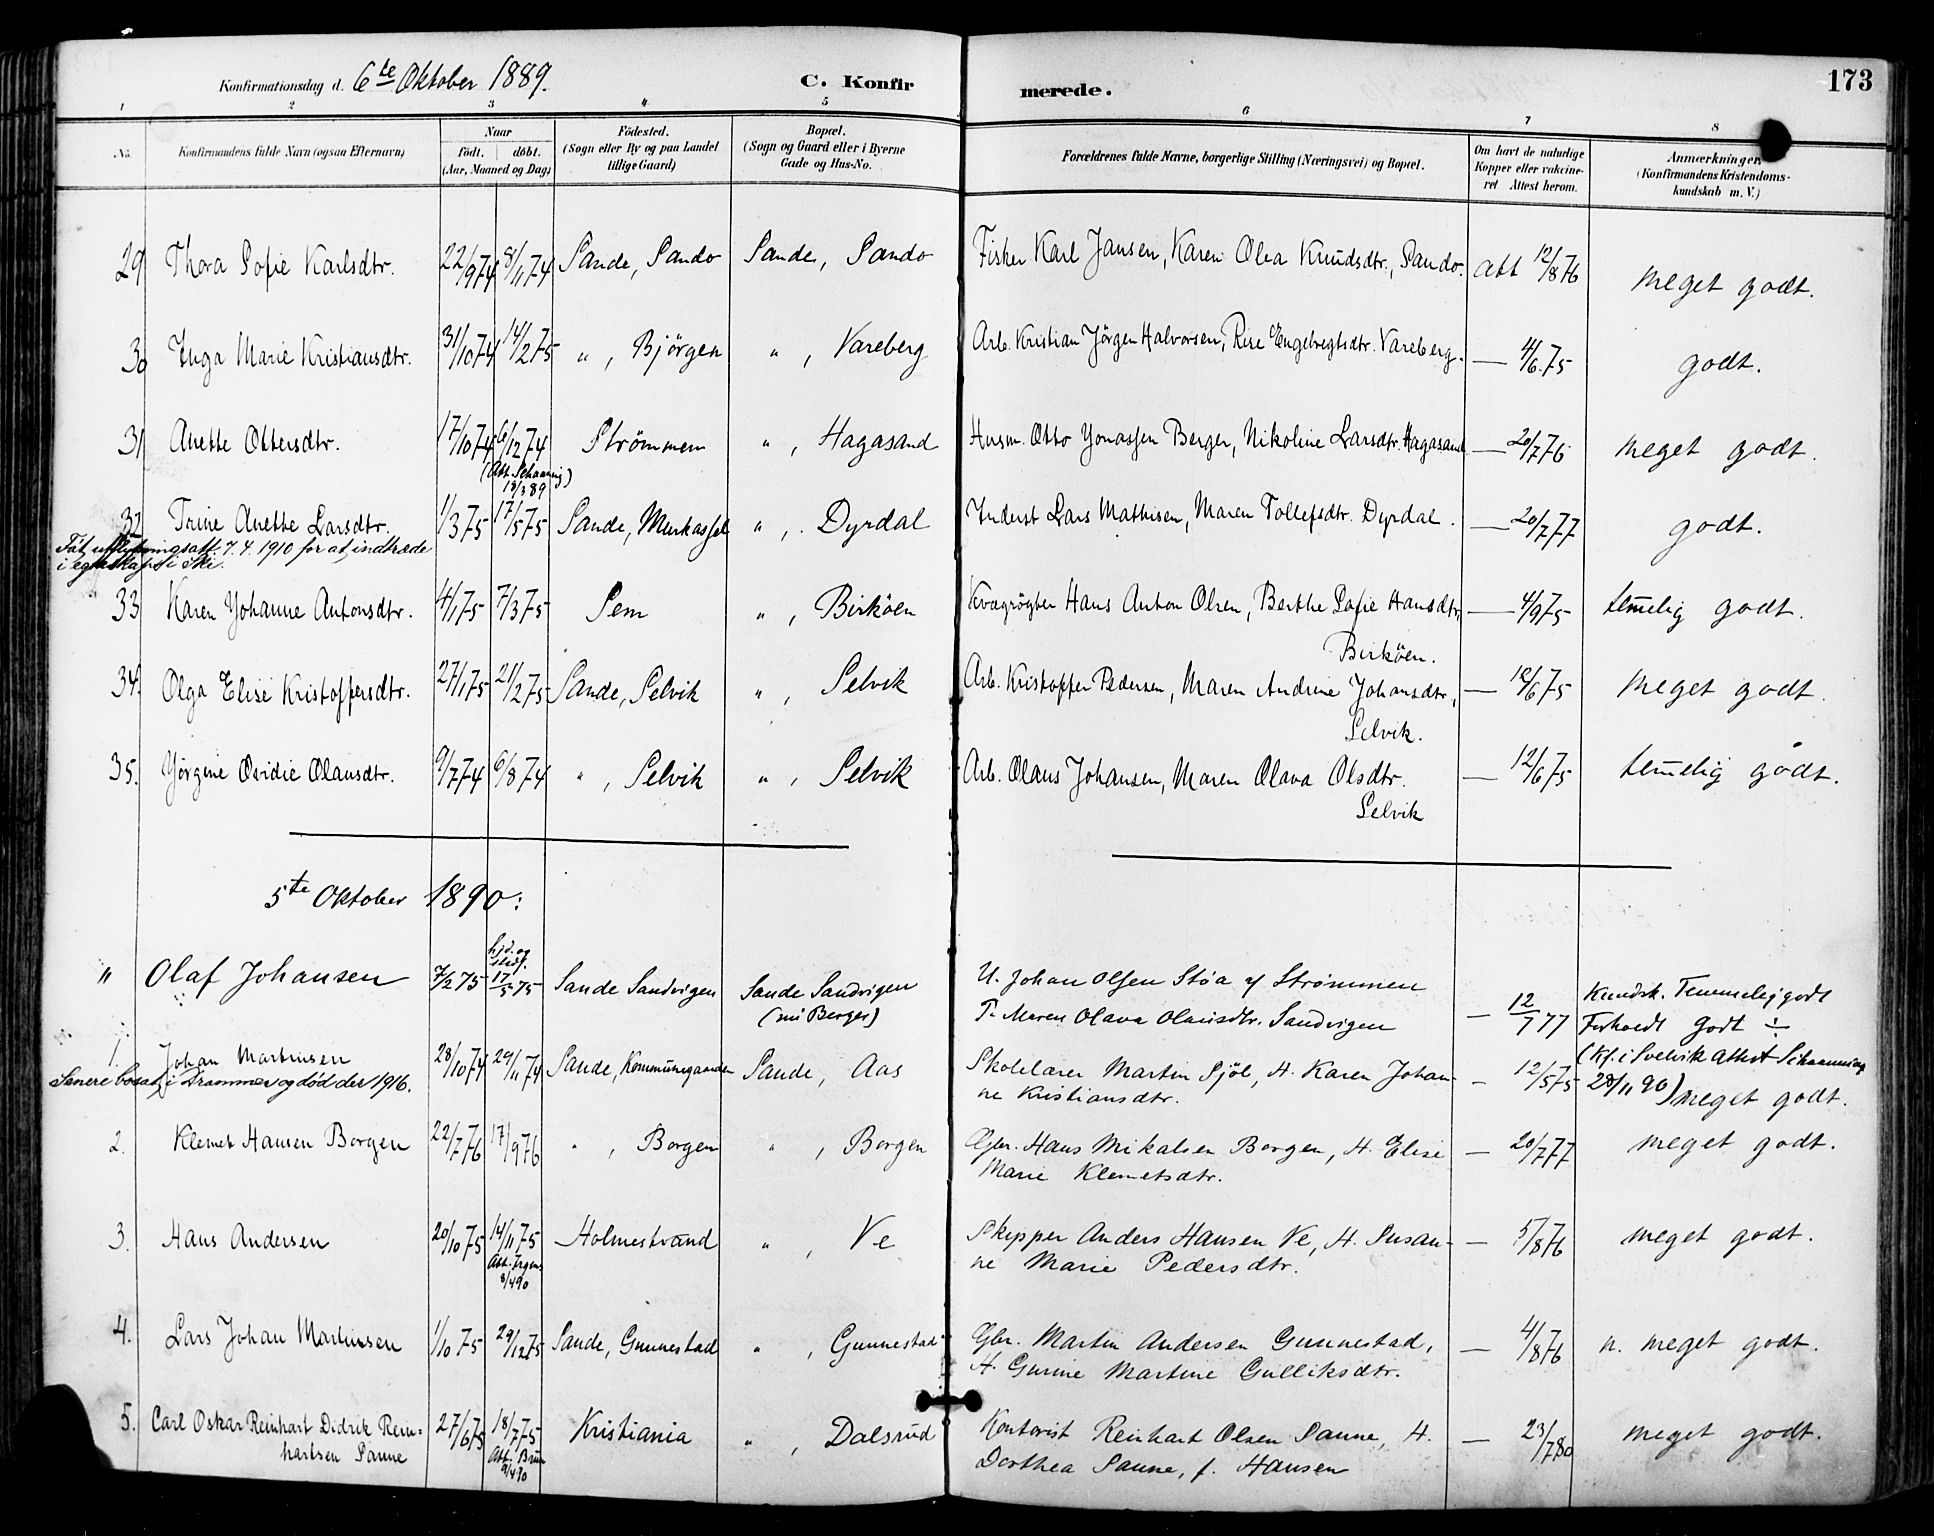 Konfirmationsdag d. 6te Oktober 1889.
C. Konfirmerede.
173
1 2 3 4 5 6 7 8
No.
Konfirmandens fulde Navn (ogsaa Efternavn)
Naar
födt. döbt.
(Aar, Maaned og Dag)
Födested.
(Sogn eller By og paa Landet
tillige Gaard)
Bopæl.
(Sogn og Gaard eller i Byerne
Gade og Hus-No.
Forældrenes fulde Navne, borgerlige Stilling (Næringsvei) og Bopæl.
Om havt de naturlige
Kopper eller vakcine-
ret Attest herom.
Anmærkninger
(Konfirmandens Kristendoms-
kundskab m. V.)
29 Thora Sofie Karlsdtr. 22/9 74 8/11 74 Sande, Sando Sande, Sando Fisker Karl Jansen, Karen Olea Knudsdtr., Sando. att 12/8 76 meget godt.
30 Inga Marie Kristiansdtr. 31/10 74 14/2 75 " , Bjørgen " , Vareberg Arb. Kristian Jörgen Halvorsen, Rise Engebregtsdtr. Vareberg. — 4/6 75 godt.
31 Anette Ottersdtr. 17/10 74 6/12 74 Strömmen " , Hagasand Husm. Otto Jonassen Berger, Nikoline Larsdtr. Hagasand — 20/7 76 meget godt.
(Att. Schaanning)
18/3 89
32 Trine Anette Larsdtr. 1/3 75 17/5 75 Sande, Murkassel " , Dyrdal Inderst Lars Mathisen, Maren Tollefsdtr. Dyrdal. — 20/7 77 godt.
Fåt utflytningsatt. 7.4.1910 for at indtræde
i egteskap i Ski.
33 Karen Johanne Antonsdtr. 4/1 75 7/3 75 Sem " , Birköen Kvægrögter Hans Anton Olsen, Berthe Sofie Hansdtr, — 4/9 75 temelig godt.
Birköen.
34. Olga Elise Kristoffersdtr. 27/1 75 21/2 75 Sande, Selvik " , Selvik Arb. Kristoffer Pedersen, Maren Andrine Johansdtr, — 12/6 75 meget godt.
Selvik.
35. Jörgine Ovidie Olausdtr. 9/7 74 6/8 74 " , Selvik " , Selvik Arb. Olaus Johansen, Maren Olava Olsdtr. — 12/6 75 temelig godt.
Selvik
5te Oktober 1890:
" Olaf Johansen 7/2 75 17/5 75 Sande Sandvigen Sande Sandvigen U. Johan Olsen Støa af Strømmen Kundsk. Temmelig godt
(nu Berger) P. Maren Olava Olausdtr. Sandvigen — 12/7 77 Forhold Godt ÷
(Kf. i Svelvik Attest Schaanning
28/11 90)
1. Johan Martinsen 28/10 74 29/11 74 Sande, Kommunegaarden Sande, Aas Skolelærer Martin Sjöl, H. Karen Johan- — 12/5 75 meget godt.
ne Kristiansdtr.
Senere bosat i Drammen og död der 1916.
2. Klemet Hansen Borgen 22/7 76 17/9 76 " , Borgen " , Borgen Gbr. Hans Mikalsen Borgen, H. Elise — 20/7 77 meget godt.
Marie Klemetsdtr.
3. Hans Andersen 20/10 75 14/11 75 Holmestrand " , Ve Skipper Anders Hansen Ve, H. Susan- — 5/8 76 meget godt.
ne Marie Pedersdtr.
8/4 90
4. Lars Johan Martinsen 1/10 75 29/12 75 Sande, Gunnestad " , Gunnestad Gbr. Martin Andersen Gunnestad, — 4/8 76 n. meget godt.
H. Gurine Martine Gulliksdtr.
5. Carl Oskar Reinhart Didrik Rein- 27/6 75 18/7 75 Kristiania " , Dalsrud Kontorist Reinhart Olsen Sanne, H. — 23/7 80 meget godt.
hartsen Sanne Dorthea Sanne, f. Hansen
Att. Bruun
9/4 90